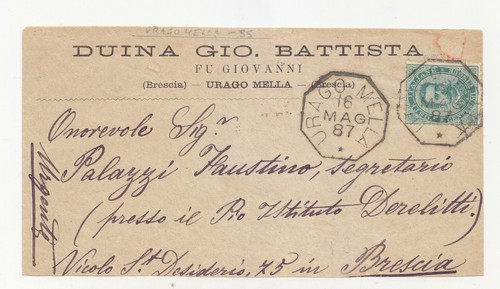 URAGO MELLA - BS
DUINA GIO. BATTISTA
FU GIOVANNI
(Brescia) — URAGO MELLA — (Brescia)
URAGO MELLA
16
MAG
87
87
Onorevole Sigr.
Palazzi Faustino, segretario
(presso il Pio Istituto Derelitti.)
Vicolo St. Desiderio, 75 in Brescia
Urgente